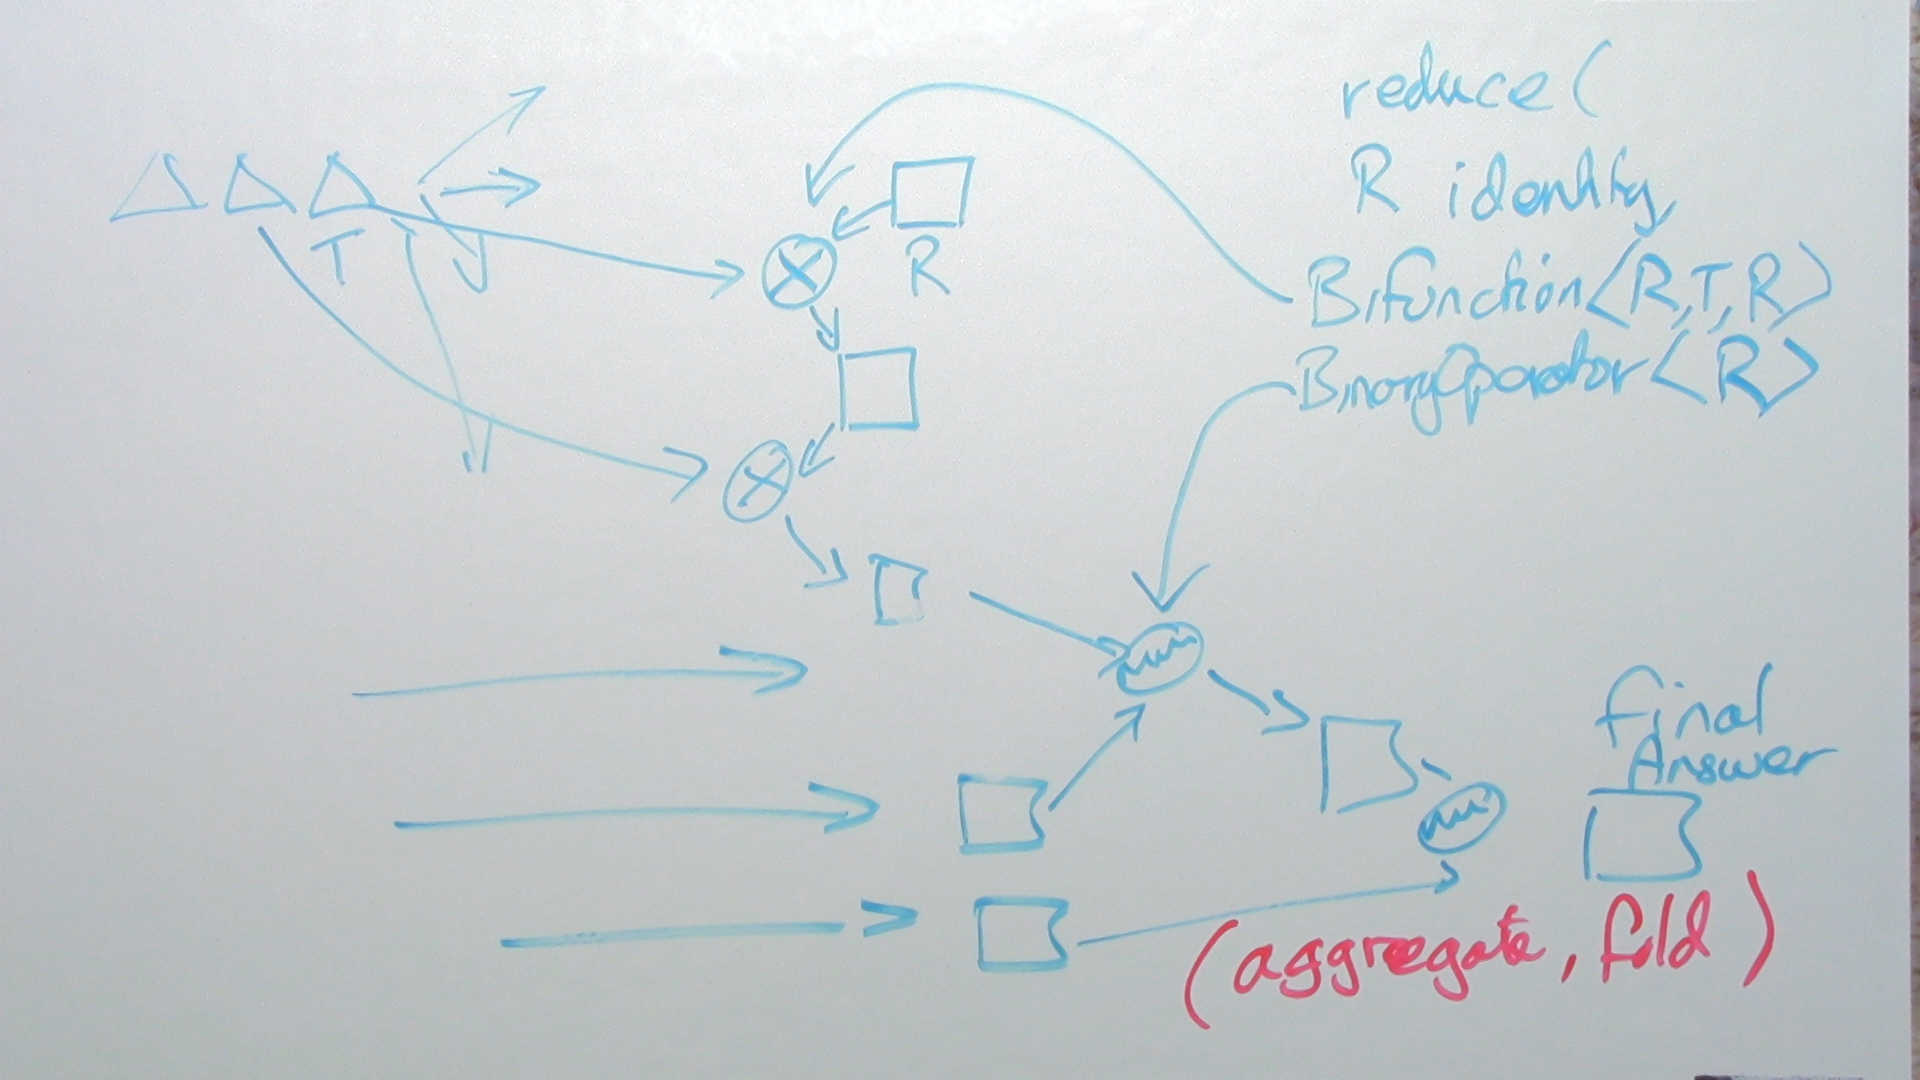 reduce(
R identity,
Bifunction<R,T,R>
BinaryOperator<R>
T
R
final
Answer
(aggregate, fold)